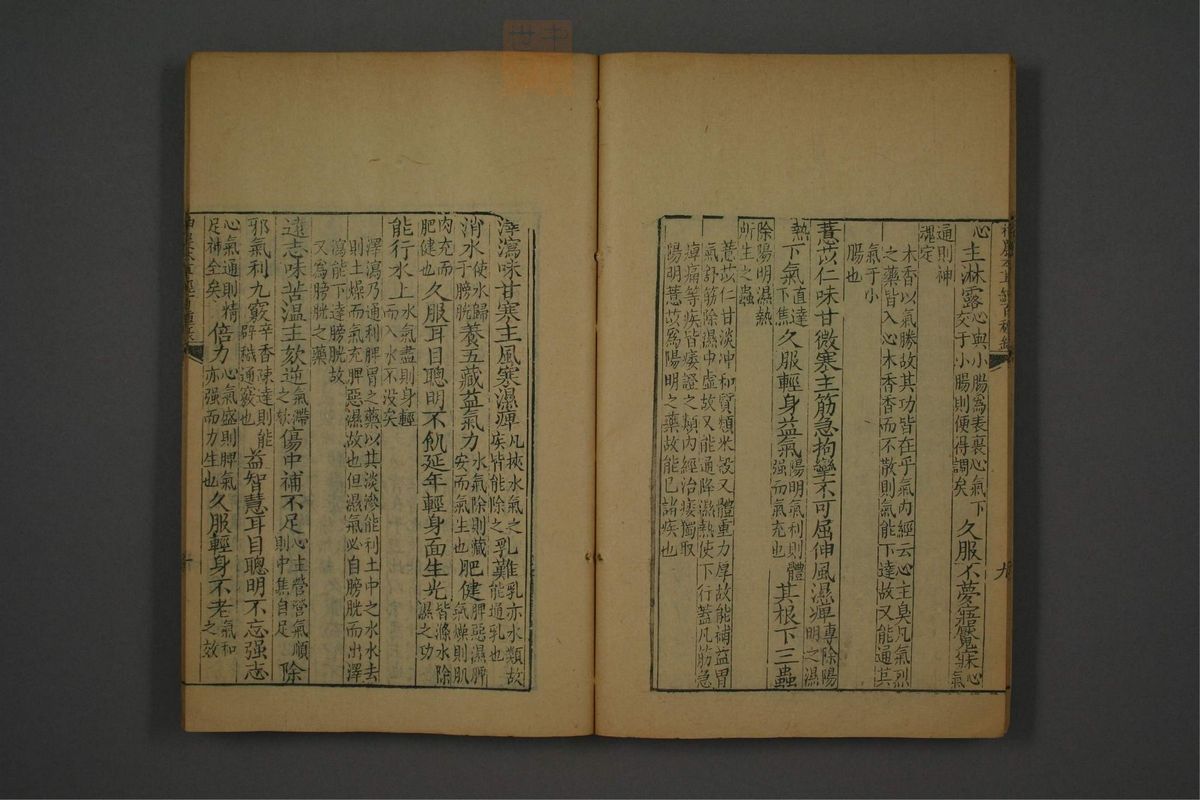 心主淋露心與小腸爲表裏心氣下交于小腸則便得調矣久服不夢寤魘寐心氣
通則神魂定
木香以氣勝故其功皆在乎氣內經云心主臭凡氣烈
之藥皆入心木香香而不散則氣能下達故又能通其
氣于小
腸也
薏苡仁味甘微寒主筋急拘攣不可屈伸風濕痺專除陽明之濕
熱下氣直達下焦久服輕身益氣陽明氣利則體强而氣充也其根下三蟲
除陽明濕熱所生之蟲
薏苡仁甘淡冲和質類米穀又體重力厚故能補益胃
氣舒筋除濕中虛故又能通降濕熱使下行蓋凡筋急
痺痛等疾皆痿證之類內經治痿獨取
陽明薏苡爲陽明之藥故能已諸疾也
九
澤瀉味甘寒主風寒濕痺凡挾水氣之疾皆能除之乳難乳亦水類故能通乳也
消水使水歸于膀胱養五藏益氣力水氣除則藏安而氣生也肥健脾惡濕脾氣燥則肌
肉充而肥健也久服耳目聰明不飢延年輕身面生光皆滌水除濕之功
能行水上水氣盡則身輕而入水不没矣
澤瀉乃通利脾胃之藥以其淡滲能利土中之水水去
則土燥而氣充脾惡濕故也但濕氣必自膀胱而出澤
瀉能下達膀胱故
又爲膀胱之藥
遠志味苦溫主欬逆氣滯之欬傷中補不足心主營營氣順則中焦自足除
邪氣利九竅辛香疎達則能辟穢通竅也益智慧耳目聰明不忘强志
心氣通則精足神全矣倍力心氣盛則脾氣亦强而力生也久服輕身不老氣和之效